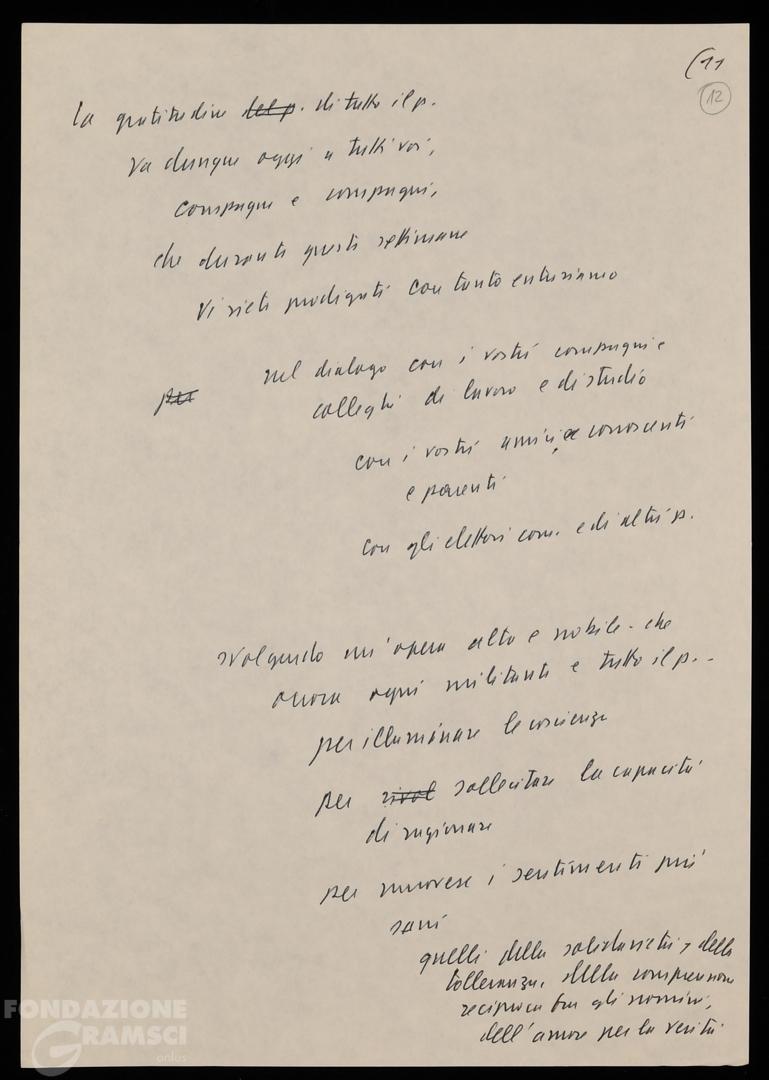 (11
12
la gratitudine del p. di tutto il p.
va dunque oggi a tutti voi,
compagne e compagni,
che durante queste settimane
vi siete prodigati con tanto entusiasmo
nel dialogo con i vostri compagni e
per
colleghi di lavoro e di studio
con i vostri amici, e conoscenti
e parenti
con gli elettori com. e di altri p.
svolgendo un'opera alta e nobile - che
onora ogni militante e tutto il p. -
per illuminare le coscienze
per sollecitare la capacità
di ragionare
per muovere i sentimenti più
sani
quelli della solidarietà, della
tolleranza, della comprensione
reciproca tra gli uomini,
dell'amore per la verità
FONDAZIONE
GRAMSCI
onlus